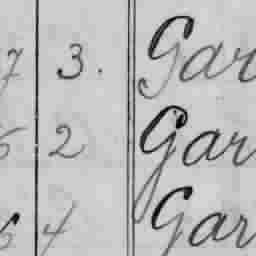 7 3. Gar
5 2 Gar
6 4 Gar